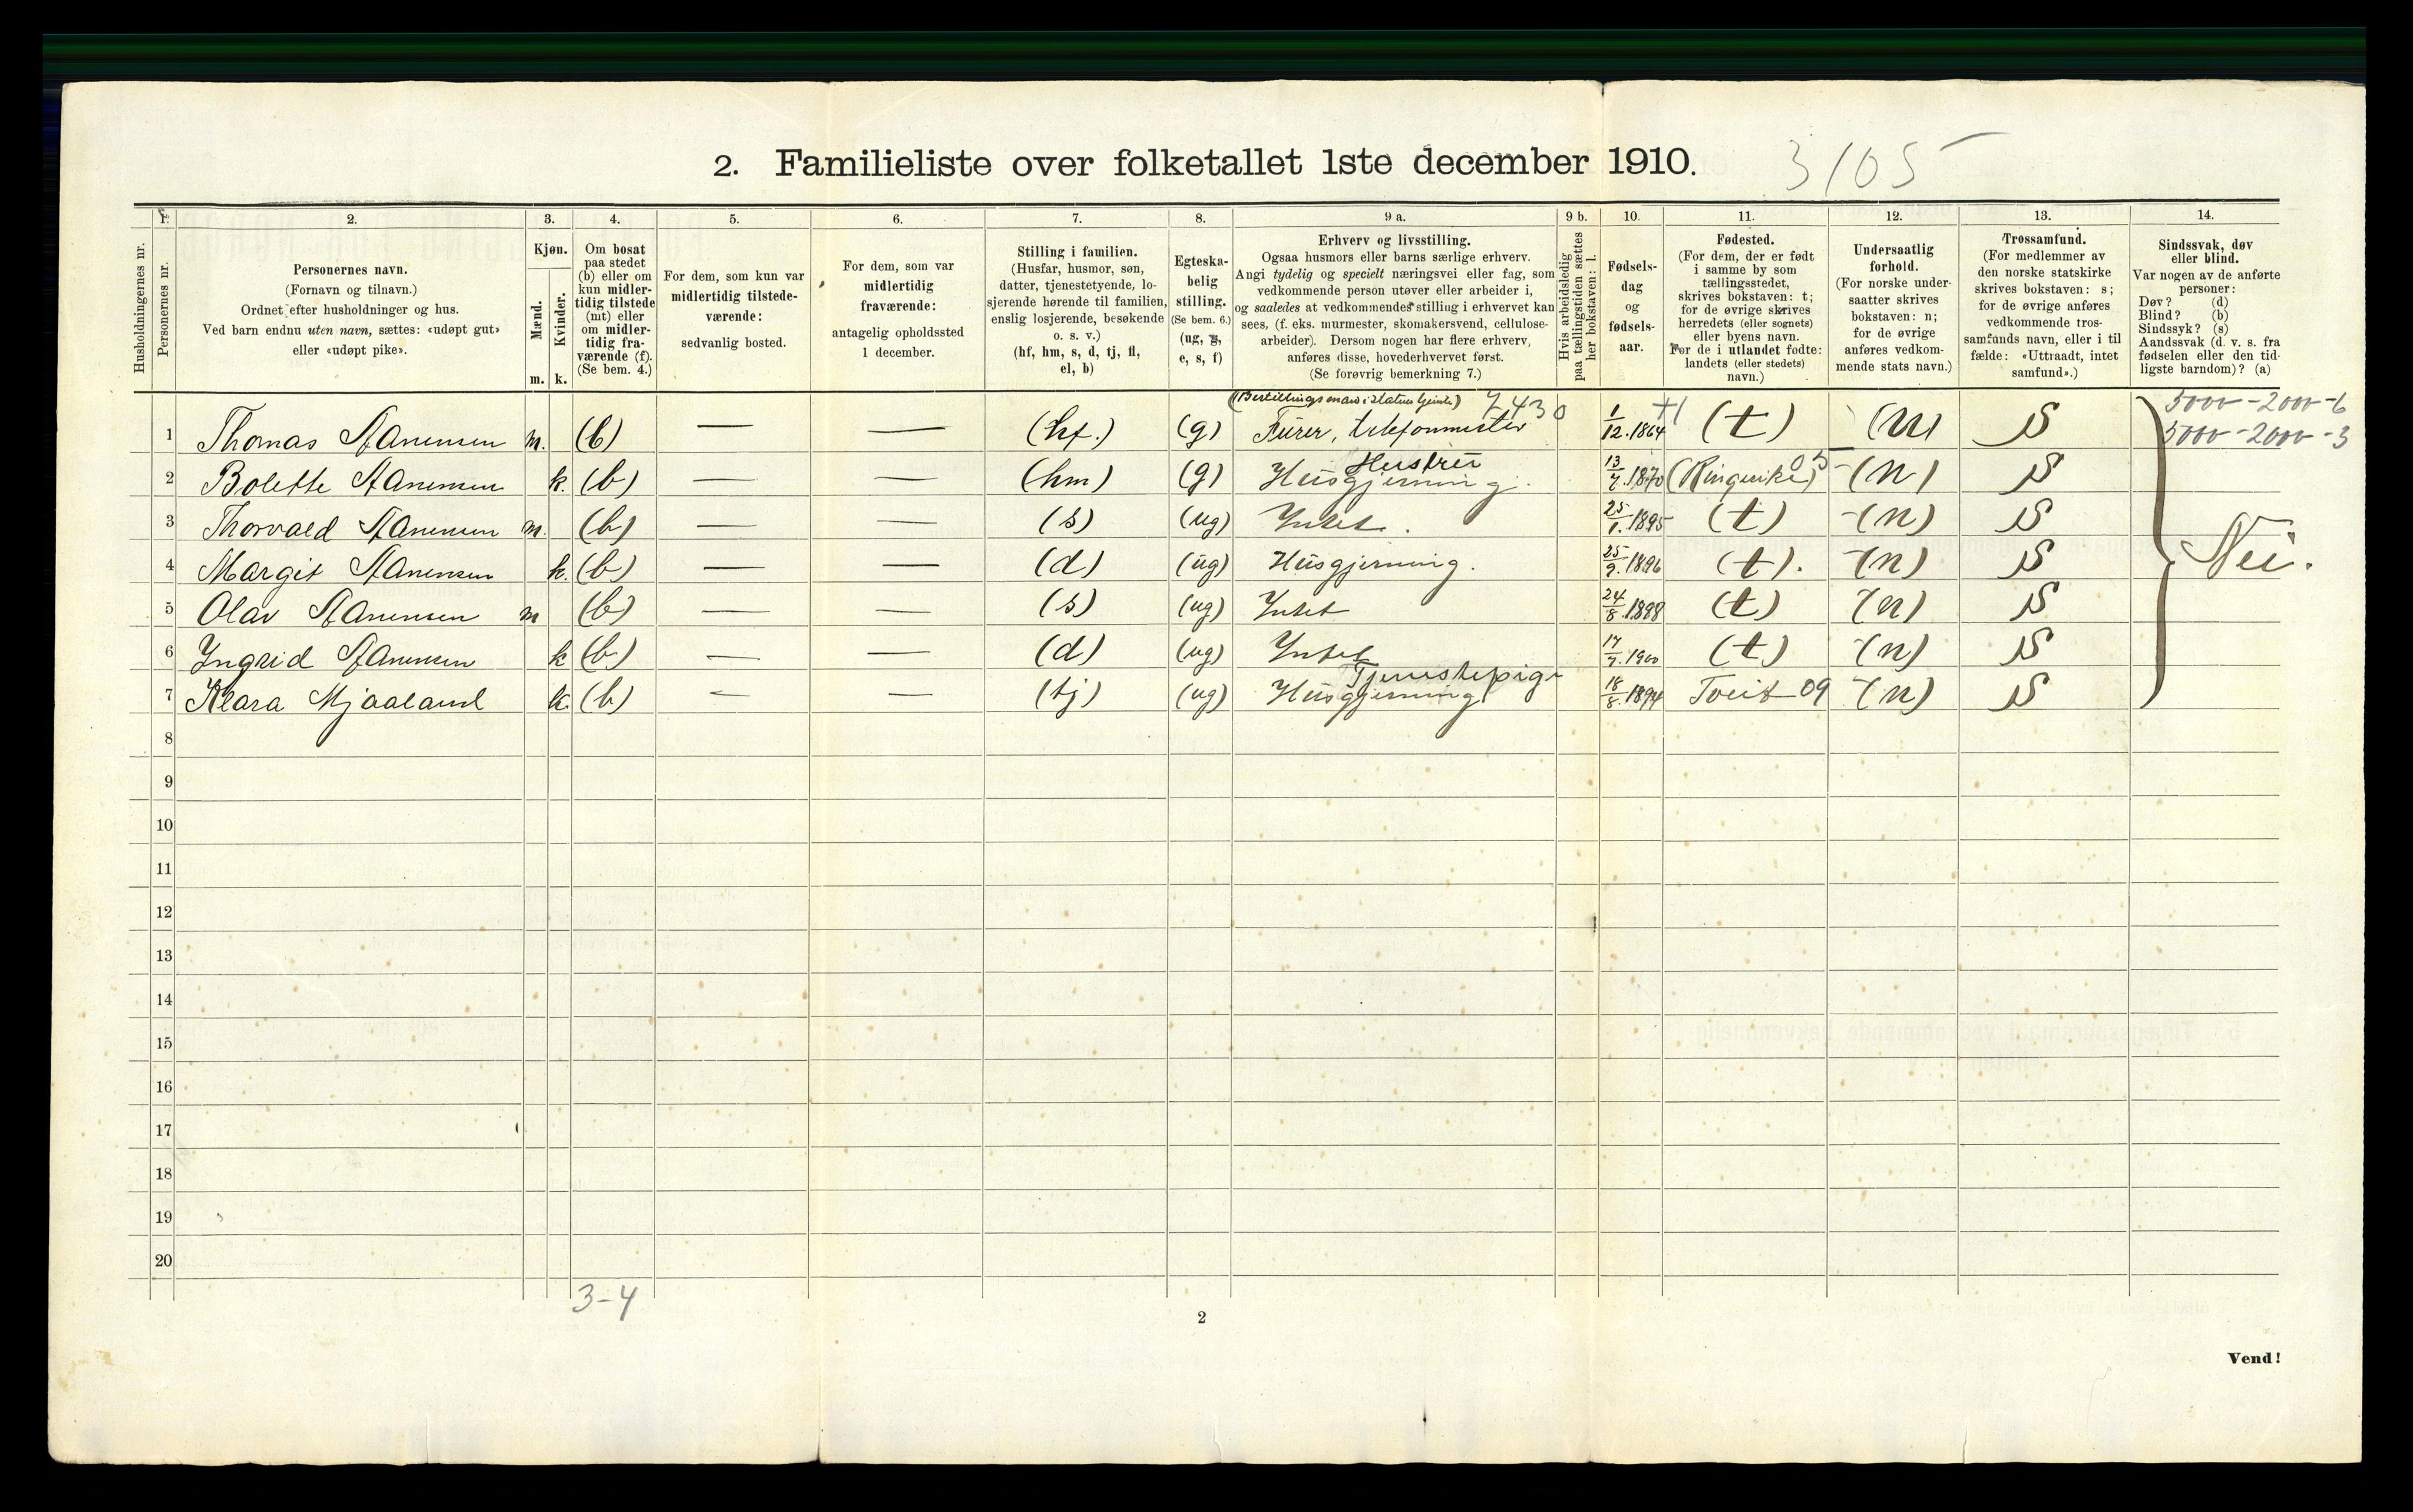 2. Familieliste over folketallet 1ste december 1910.
3105
1. 2. 3. 4. 5. 6. 7. 8. 9 a. 9 b. 10. 11. 12. 13. 14.
Husholdningernes nr.
Personernes nr.
Personernes navn.
(Fornavn og tilnavn.)
Ordnet efter husholdninger og hus.
Ved barn endnu uten navn, sættes: «udøpt gut»
eller «udøpt pike».
Kjøn.
Mænd.
Kvinder.
m. k.
Om bosat
paa stedet
(b) eller om
kun midler-
tidig tilstede
(mt) eller
om midler-
tidig fra-
værende (f).
(Se bem. 4.)
For dem, som kun var
midlertidig tilstede-
værende:
sedvanlig bosted.
For dem, som var
midlertidig
fraværende:
antagelig opholdssted
1 december.
Stilling i familien.
(Husfar, husmor, søn,
datter, tjenestetyende, lo-
sjerende hørende til familien,
enslig losjerende, besøkende
o. s. v.)
(hf, hm, s, d, tj, fl,
el, b)
Egteska-
belig
stilling.
(Se bem. 6.)
(ug, g,
e, s, f)
Erhverv og livsstilling.
Ogsaa husmors eller barns særlige erhverv.
Angi tydelig og specielt næringsvei eller fag, som
vedkommende person utøver eller arbeider i,
og saaledes at vedkommendes stilling i erhvervet kan
sees, (f. eks. murmester, skomakersvend, cellulose-
arbeider). Dersom nogen har flere erhverv,
anføres disse, hovederhvervet først.
(Se forøvrig bemerkning 7.)
Hvis arbeidsledig
paa tællingstiden sættes
her bokstaven: l.
Fødsels-
dag
og
fødsels-
aar.
Fødested.
(For dem, der er født
i samme by som
tællingsstedet,
skrives bokstaven: t;
for de øvrige skrives
herredets (eller sognets)
eller byens navn.
For de i utlandet fødte:
landets (eller stedets)
navn.)
Undersaatlig
forhold.
(For norske under-
saatter skrives
bokstaven: n;
for de øvrige
anføres vedkom-
mende stats navn.)
Trossamfund.
(For medlemmer av
den norske statskirke
skrives bokstaven: s;
for de øvrige anføres
vedkommende tros-
samfunds navn, eller i til
fælde: «Uttraadt, intet
samfund».)
Sindssvak, døv
eller blind.
Var nogen av de anførte
personer:
Døv? (d)
Blind? (b)
Sindssyk? (s)
Aandssvak (d. v. s. fra
fødselen eller den tid-
ligste barndom)? (a)
7430
5000-2000-6
1 Thomas Aanensen m. (b) — — (hf.) (g) Furer, telefonmester 1/12.1864 (t) (n) S 5000-2000-3
Hustru
2 Bolette Aanensen k. (b) — — (hm) (g) Husgjerning. 13/7.1870 (Ringerike) 05 (n) S
3 Thorvald Aanensen m. (b) — — (s) (ug) Intet. 25/1.1895 (t) (n) S
4 Margit Aanensen k. (b) — — (d) (ug) Husgjerning. 25/9.1896 (t). (n) S Nei.
5 Olav Aanensen m (b) — — (s) (ug) Intet 24/8.1898 (t) (n) S
6 Yngrid Aanensen k (b) — — (d) (ug) Intet 17/7.1900 (t) (n) S
Tjenestepige
7 Klara Mjaaland k. (b) — — (tj) (ug) Husgjerning 18/8.1894 Tveit 09 (n) S
8
9
10
11
12
13
14
15
16
17
18
19
20
3-4
2
Vend!